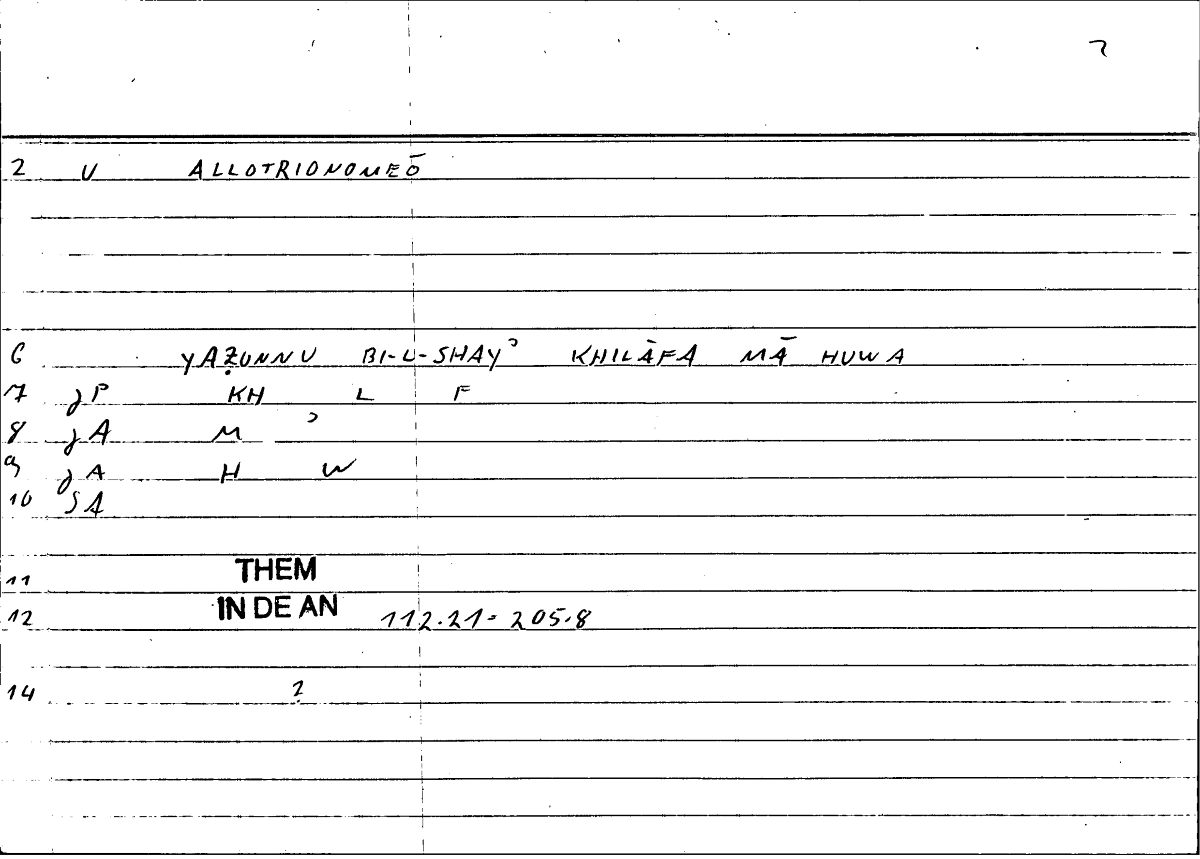 2 V ALLOTRIONOMEŌ
6 YAẒUNNU BI-L-SHAYʾ KHILĀFA MĀ HUWA
7 jP KH L F
8 jA M ʾ
9 jA H W
10 SA
11 THEM
12 IN DE AN 112.21 = 205.8
14 ?